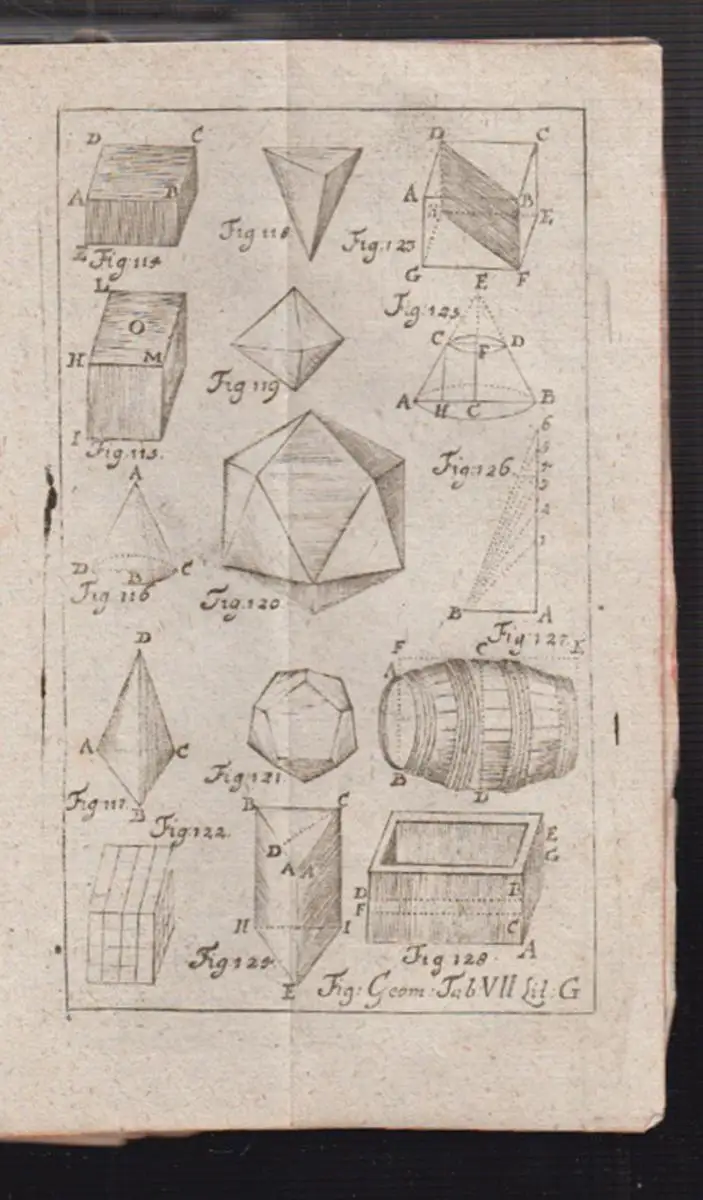 D C
A B
E
Fig 114
Fig 118
D C
A B
E
G F
Fig 123
L
O
H M
I
Fig 115.
Fig 119
Fig 125
E
C D
F
A H C B
A
D B C
Fig 116
Fig. 120
Fig 126
6
5
4
3
2
1
B A
Fig 127.
D
A C
B
Fig 117
Fig 121
F C E
A
B
D
Fig. 122
B C
D
A
H I
E
E
G
D B
F C
A
Fig 128
Fig: Geom: Tab: VII Lit: G